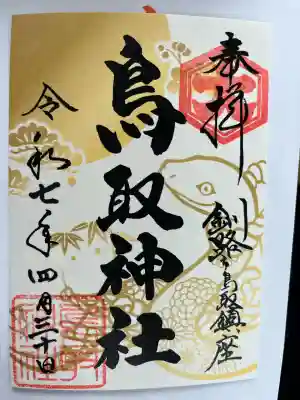 奉拝
釧路之鳥取鎮座
鳥取神社
令和七年四月三十日